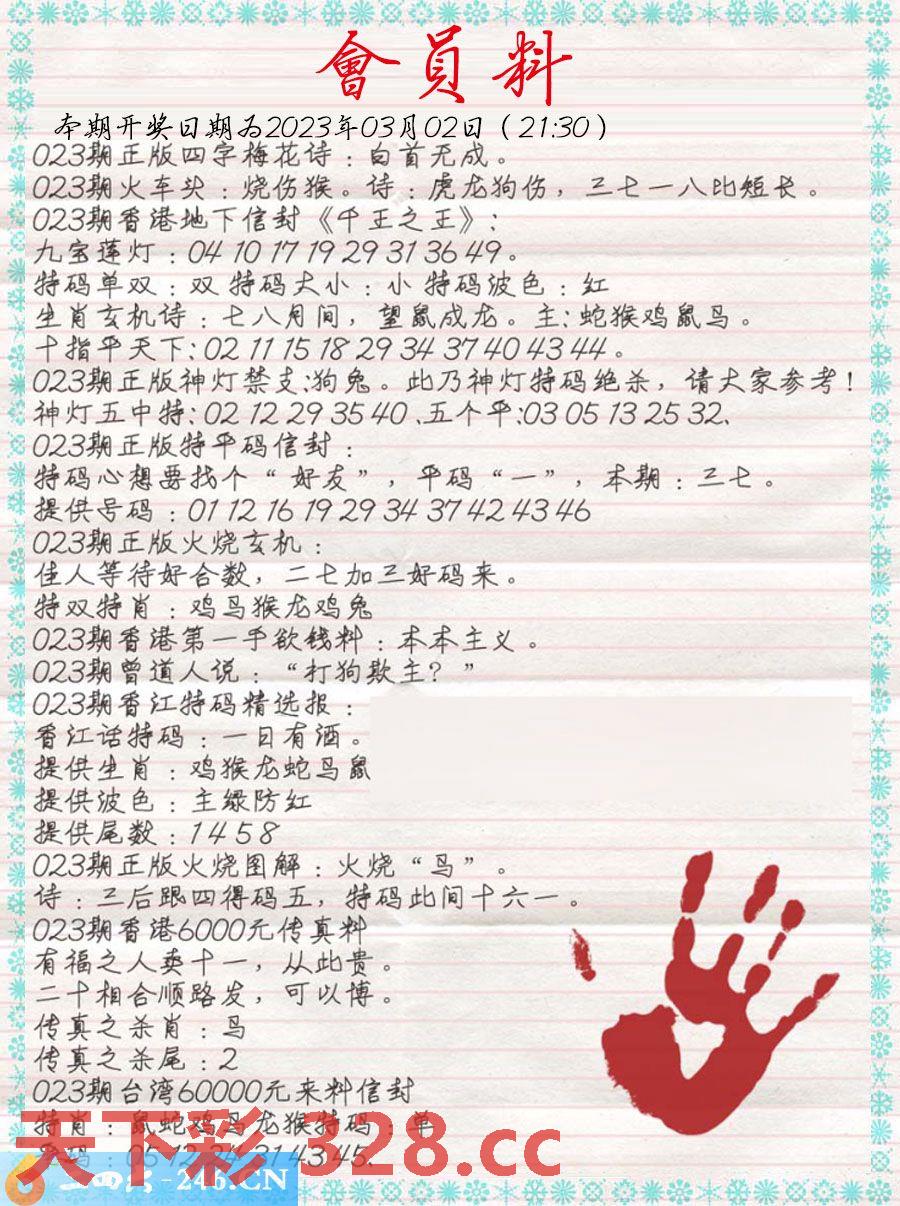 會員料
本期开奖日期为2023年03月02日（21:30）
023期正版四字梅花诗：白首无成。
023期火车头：烧伤猴。诗：虎龙狗伤，三七一八比短长。
023期香港地下信封《千王之王》：
九宝莲灯：04 10 17 19 29 31 36 49。
特码单双：双 特码大小：小 特码波色：红
生肖玄机诗：七八月间，望鼠成龙。主：蛇猴鸡鼠鸟。
十指平天下：02 11 15 18 29 34 37 40 43 44。
023期正版神灯禁支:狗兔。此乃神灯特码绝杀，请大家参考！
神灯五中特：02 12 29 35 40 .五个平:03 05 13 25 32.
023期正版特平码信封：
特码心想要找个“ 好友”，平码“一”，本期：三七。
提供号码：01 12 16 19 29 34 37 42 43 46
023期正版火烧玄机：
佳人等待好合数，二七加三好码来。
特双特肖：鸡鸟猴龙鸡兔
023期香港第一手欲钱料：本本主义。
023期曾道人说：“打狗欺主？”
023期香江特码精选报：
香江话特码：一日有酒。
提供生肖：鸡猴龙蛇鸟鼠
提供波色：主绿防红
提供尾数：1 4 5 8
023期正版火烧图解：火烧“鸟”。
诗：三后跟四得码五，特码此间十六一。
023期香港6000元传真料
有福之人卖十一，从此贵。
二十相合顺路发，可以博。
传真之杀肖：鸟
传真之杀尾：2
023期台湾60000元来料信封
特肖：鼠蛇鸡鸟龙猴特码：单
05 12 24 31 43 45.
天下彩 328.cc
二四六-246.CN